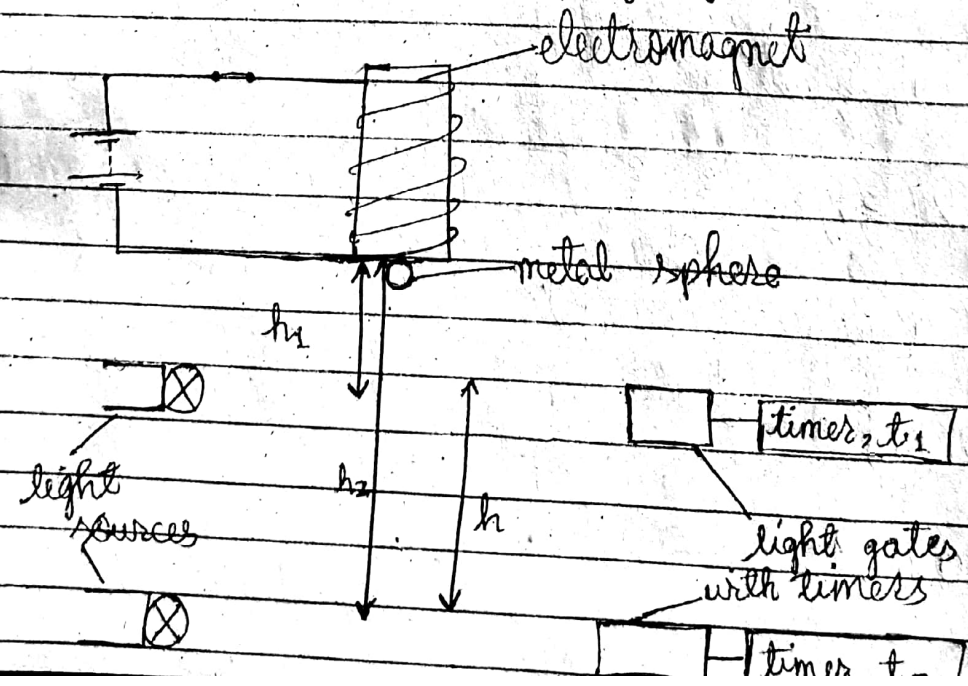 electromagnet
metal sphere
h1
timer, t1
light
sources
h2
h
light gates
with timers
timer t